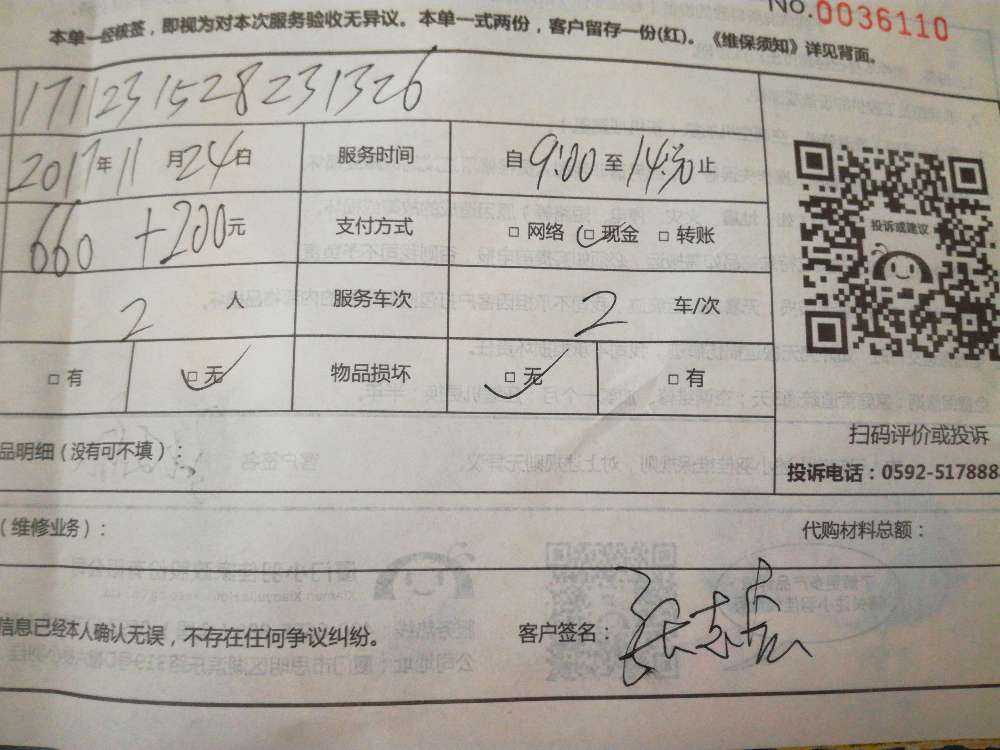 No.0036110
本单一经核签，即视为对本次服务验收无异议。本单一式两份，客户留存一份(红)。《维保须知》详见背面。
171123152823 1326
2017年11月24日 服务时间 自9:00至14:30止
660+200元 支付方式 □ 网络 □ 现金 □ 转账
2 人 服务车次 2 车/次
□ 有 □ 无 物品损坏 □ 无 □ 有
投诉或建议
扫码评价或投诉
品明细（没有可不填）：
投诉电话：0592-517888
（维修业务）： 代购材料总额：
信息已经本人确认无误，不存在任何争议纠纷。 客户签名：